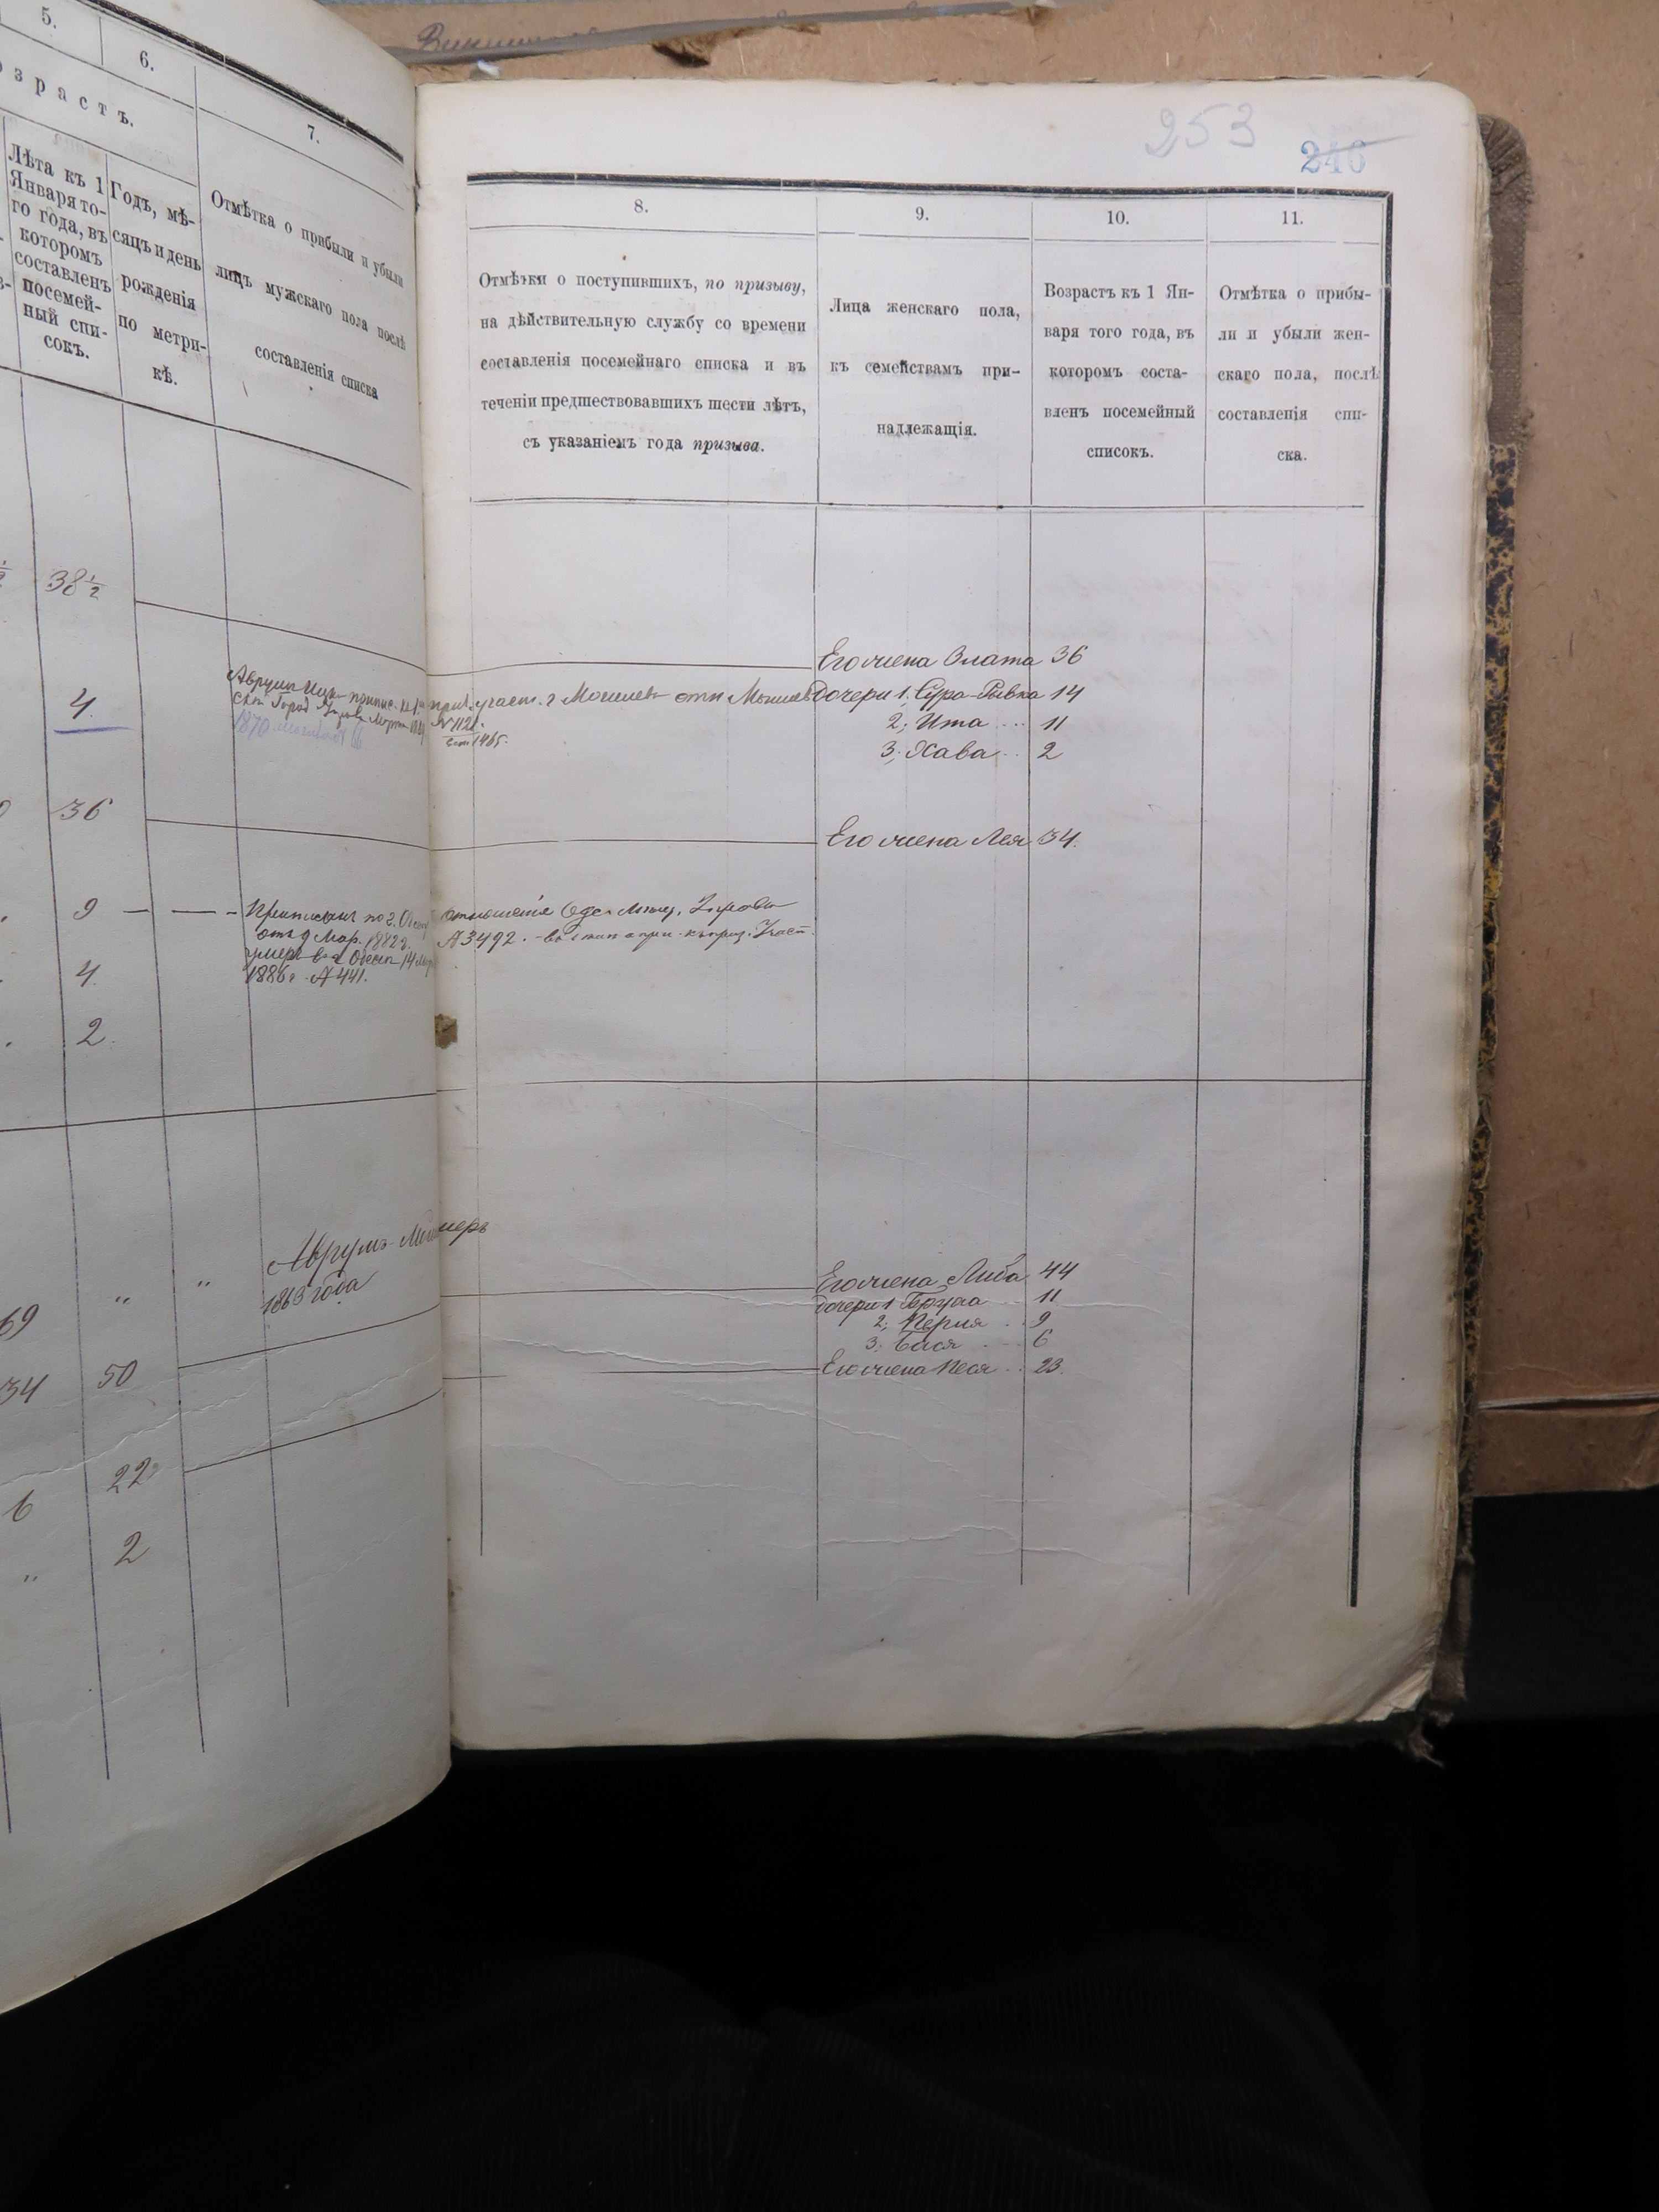 5.
6.
7.
озрастъ.
Лѣта къ 1
Января то-
го года, въ
которомъ
составленъ
посемей-
ный спи-
сокъ.
Годъ, мѣ-
сяцъ и день
рожденія
по метри-
кѣ.
Отмѣтка о прибыли и убыли
лицъ мужскаго пола послѣ
составленія списка
38 1/2
4.
1870
36
9
Приписанъ по г.
отъ 9 Мар. 1882 г.
умеръ въ г. Одессѣ 14
1886 г. № 441.
4
2
Аврумъ умеръ
1863 года
69 " "
34 50
6 22
" 2
253
246
8.
9.
10.
11.
Отмѣтки о поступившихъ, по призыву,
на дѣйствительную службу со времени
составленія посемейнаго списка и въ
теченіи предшествовавшихъ шести лѣтъ,
съ указаніемъ года призыва.
Лица женскаго пола,
къ семействамъ при-
надлежащія.
Возрастъ къ 1 Ян-
варя того года, въ
которомъ соста-
вленъ посемейный
списокъ.
Отмѣтка о прибы-
ли и убыли жен-
скаго пола, послѣ
составленія спи-
ска.
Его жена Злата 36
дочери 1, Сура-Ривка 14
2, Ита 11
3, Хава 2
№ 1121
1465.
Его жена Лея 34.
отношенія Одес.
№ 3492.
Его жена Либа 44
дочери 1 Бруха 11
2, Перля 9
3, Бася 6
Его жена Песя 23.